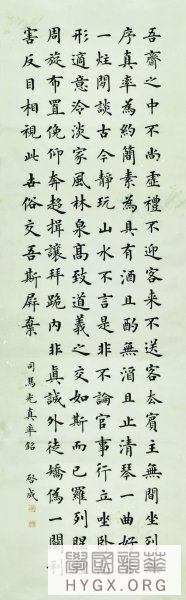 吾齋之中不尚虛禮不迎客來不送客去賓主無間坐列
序真率為約簡素為具有酒且酌無酒且止清琴一曲好
一炷閒談古今靜玩山水不言是非不論官事行立坐臥
形適意冷淡家風林泉高致道義之交如斯而已羅列腥
周旋布置俛仰奔趨揖讓拜跪內非真誠外徒矯偽一關利
害反目相視此世俗交吾斯屏棄
司馬光真率銘
啟成
學國韻華
HYGX.ORG